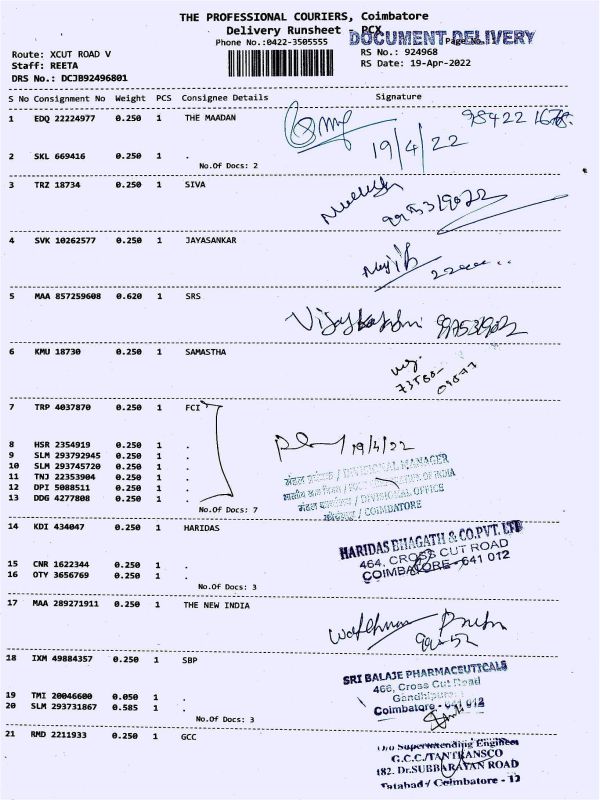 THE PROFESSIONAL COURIERS, Coimbatore
Delivery Runsheet - PCX
Phone No.:0422-3505555
DOCUMENT DELIVERY
Page No.
Route: XCUT ROAD V
RS No.: 924968
Staff: REETA
RS Date: 19-Apr-2022
DRS No.: DCJB92496801
S No Consignment No Weight PCS Consignee Details Signature
1 EDQ 22224977 0.250 1 THE MAADAN
19/4/22
2 SKL 669416 0.250 1 .
No.Of Docs: 2
3 TRZ 18734 0.250 1 SIVA
4 SVK 10262577 0.250 1 JAYASANKAR
5 MAA 857259608 0.620 1 SRS
6 KMU 18730 0.250 1 SAMASTHA
7 TRP 4037870 0.250 1 FCI
19/4/22
8 HSR 2354919 0.250 1 .
9 SLM 293792945 0.250 1 .
10 SLM 293745720 0.250 1 .
11 TNJ 22353904 0.250 1 .
12 DPI 5088511 0.250 1 .
13 DDG 4277808 0.250 1 .
No.Of Docs: 7
/ DIVISIONAL MANAGER
OF INDIA
/ DIVISIONAL OFFICE
/ COIMBATORE
14 KDI 434047 0.250 1 HARIDAS
HARIDAS BHAGATH & CO.PVT. LTD
464, CROSS CUT ROAD
COIMBATORE - 641 012
15 CNR 1622344 0.250 1 .
16 OTY 3656769 0.250 1 .
No.Of Docs: 3
17 MAA 289271911 0.250 1 THE NEW INDIA
18 IXM 49884357 0.250 1 SBP
SRI BALAJE PHARMACEUTICALS
466, Cross Cut Road
Gandhipuram
Coimbatore - 641 012
19 TMI 20046600 0.050 1 .
20 SLM 293731867 0.585 1 .
No.Of Docs: 3
21 RMD 2211933 0.250 1 GCC
O/o Superintending Engineer
G.C.C./TANTRANSCO
182. Dr.SUBBARAYAN ROAD
Tatabad / Coimbatore - 12